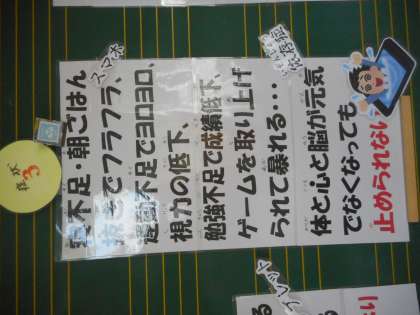 スマホ
依存症
寝不足・朝ごはん
抜きでフラフラ、
運動不足でヨロヨロ、
視力の低下、
勉強不足で成績低下、
ゲームを取り上げ
られて暴れる…
体と心と脳が元気
でなくなっても
止められない
3